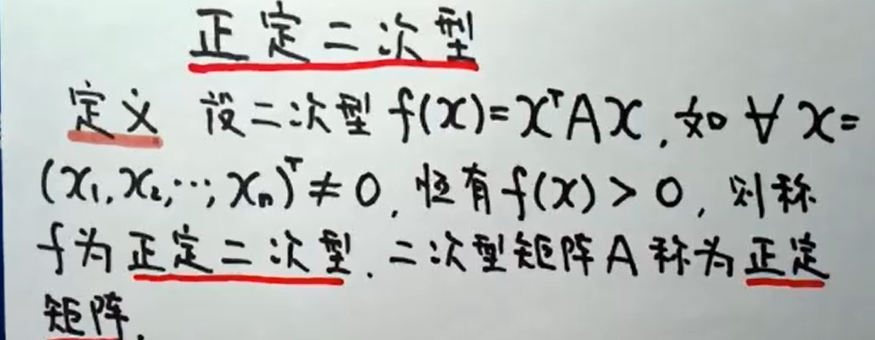 正定二次型
定义 设二次型 f(x)=xᵀAx,如 ∀ x=
(x₁,x₂,⋯,xₙ)ᵀ≠0,恒有f(x)>0,则称
f为正定二次型.二次型矩阵A称为正定
矩阵.